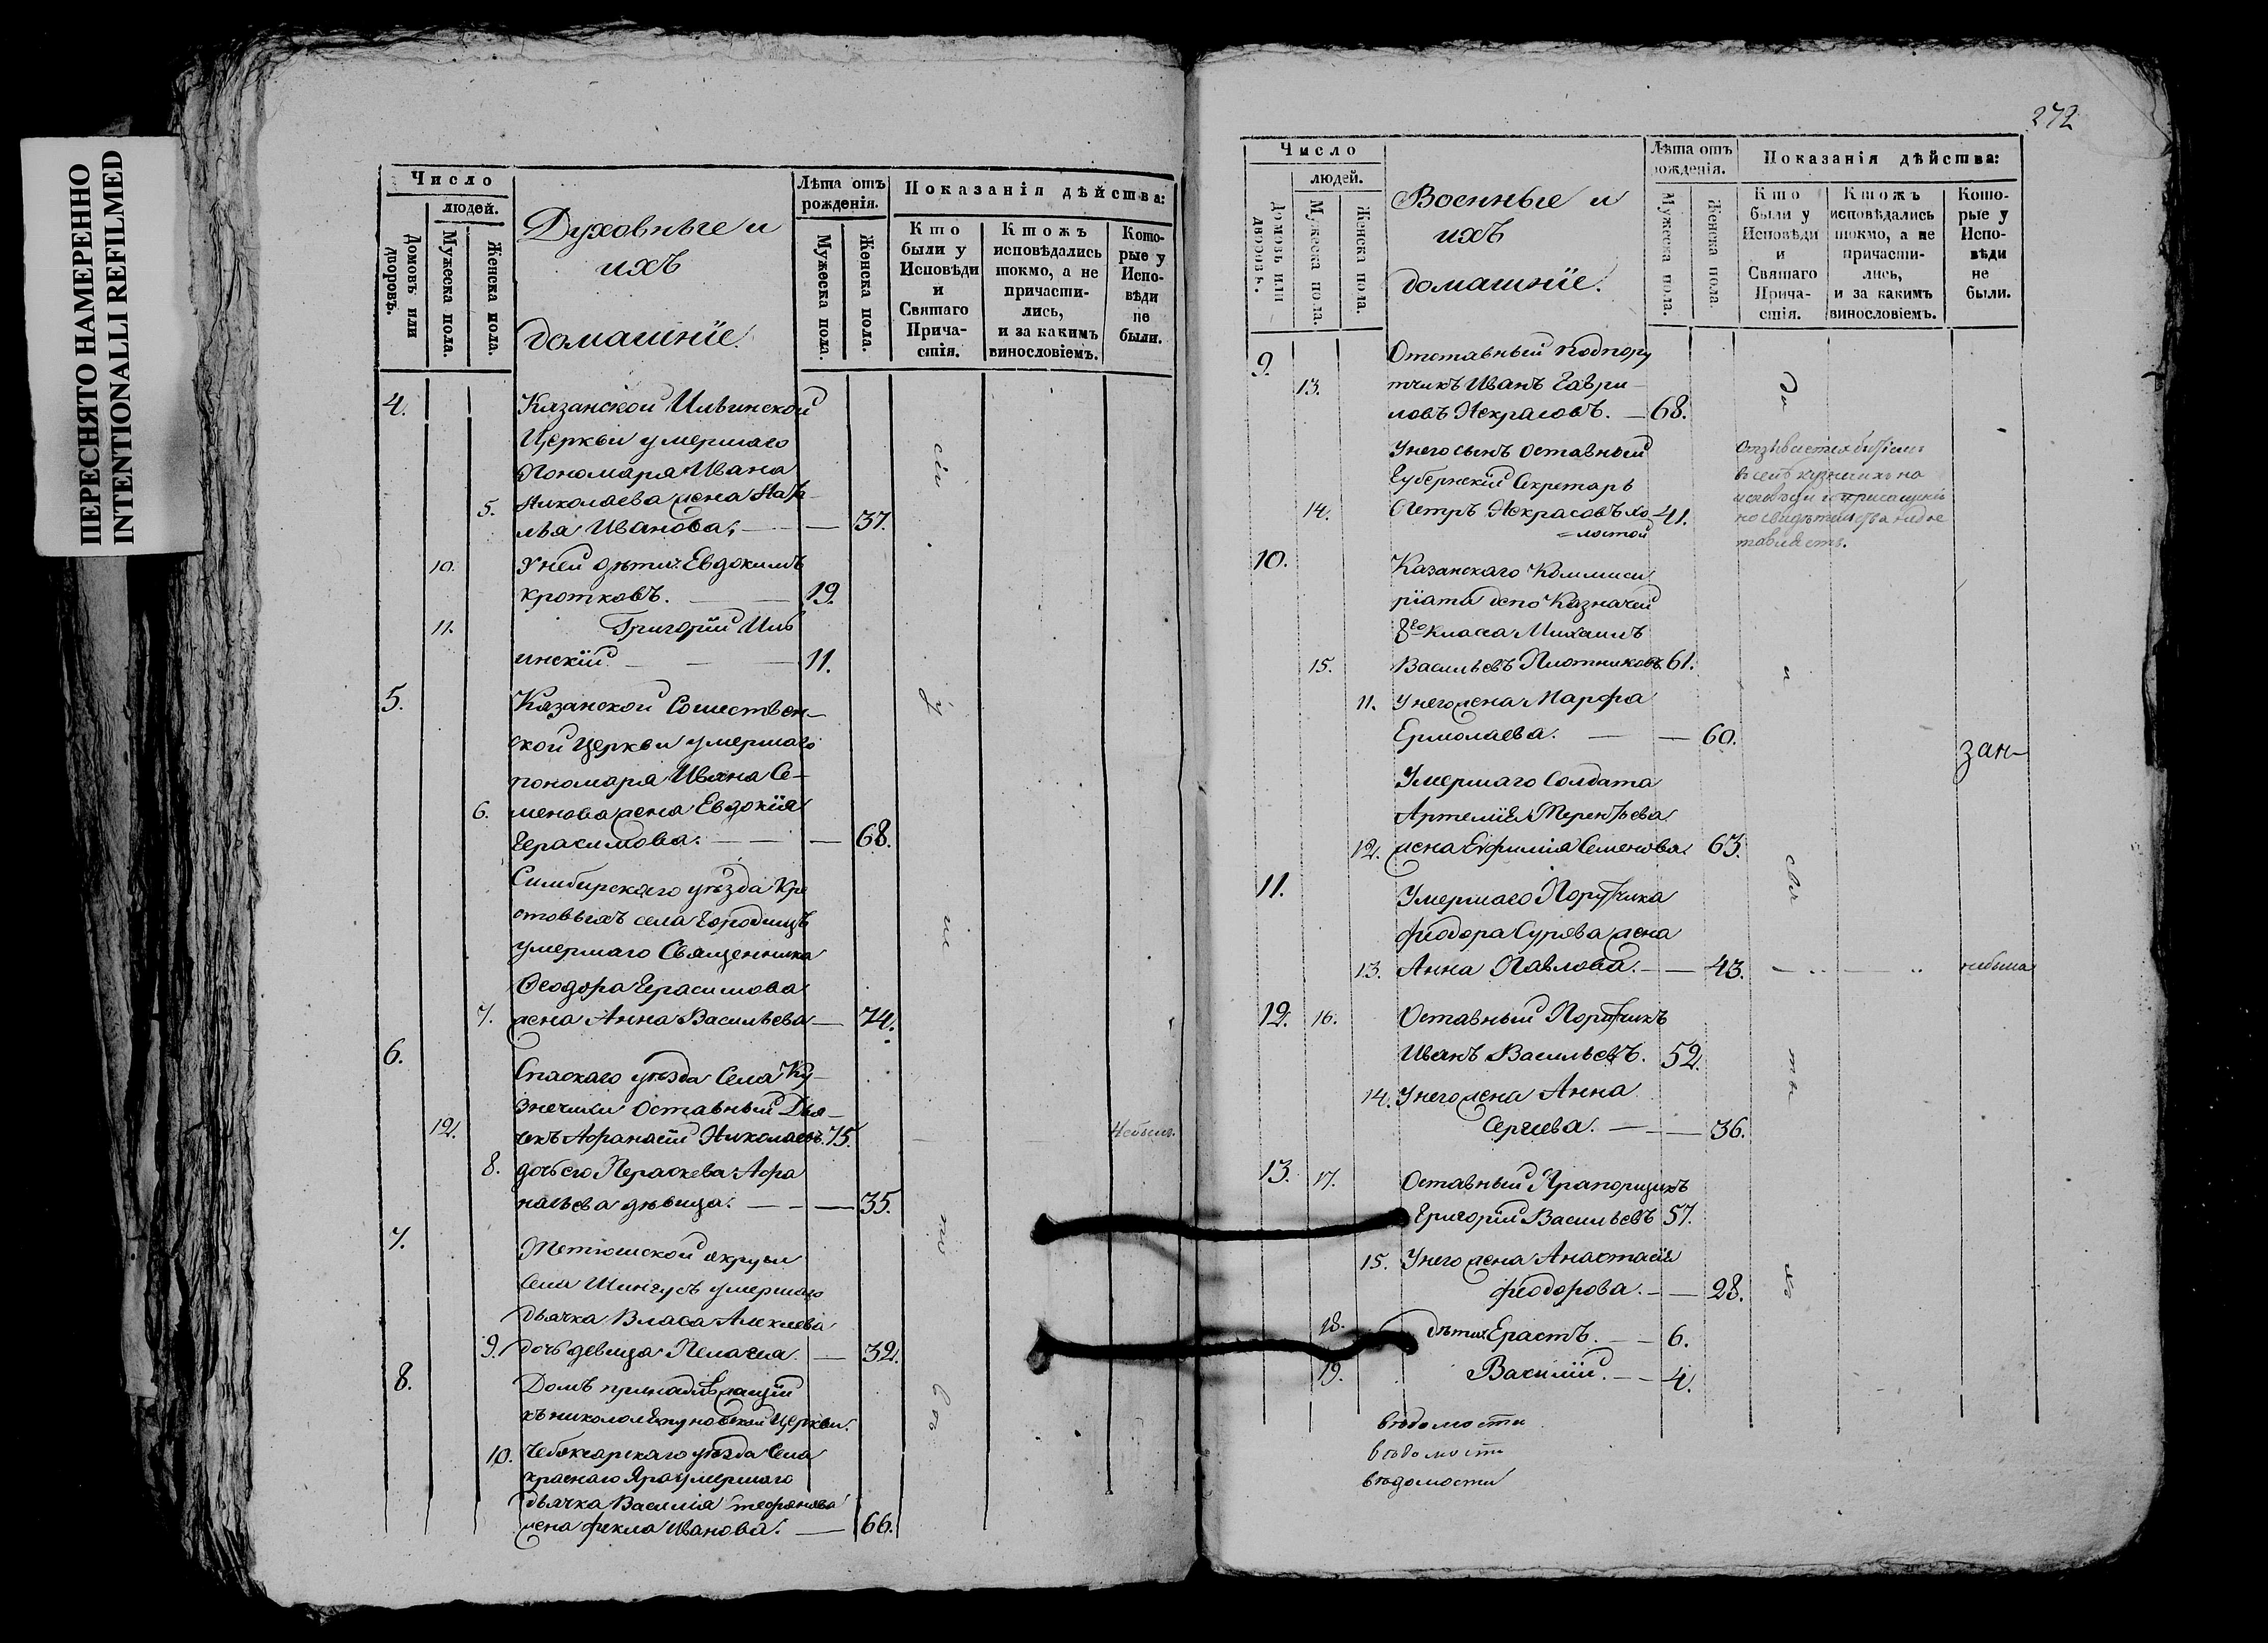 ПЕРЕСНЯТО НАМЕРЕННО
INTENTIONALLI REFILMED
Число
людей.
Домовъ или дворовъ.
Мужеска пола.
Женска пола.
Духовные и
ихъ
домашніе.
Лѣта отъ
рожденія.
Мужеска пола.
Женска пола.
Показанія дѣйства:
Кто
были у
Исповѣди
и
Святаго
Прича-
стія.
Ктожъ
исповѣдались
токмо, а не
причасти-
лись,
и за какимъ
винословіемъ.
Кото-
рые у
Испо-
вѣди
не
были.
4. Казанской Ильинской
Церкви умершаго
Пономаря Ивана
5. Николаева жена Ната-
лья Иванова. 37.
10. У ней дѣти: Евдокимъ
Кротковъ. 19.
11. Григорій Иль
инскій. 11.
5. Казанской Сошествен-
ской Церкви умершаго
пономаря Ивана Се-
6. менова жена Евдокія
Герасимова. 68.
Симбирскаго уѣзда Кре
стовыхъ села Городищъ
умершаго Священника
Ѳеодора Герасимова
7. жена Анна Васильева 74.
6. Спаскаго уѣзда Села Ку-
знечихи Оставный Дья-
12. чекъ Афанасій Николаевъ. 75. Небылъ.
8. дочь его Параскева Афа
насьева дѣвица. 35.
7. Тетюшской округи
Села Шингусъ умершаго
дьячка Власа Алексѣева
9. дочь девица Пелагея. 32.
8. Домъ принадлѣжащій
къ Церкви.
10. Чебоксарскаго уѣзда Села
Краснаго Яра умершаго
дьячка Василія Стефанова
жена Фекла Иванова. 66.
272
Число
людей.
Домовъ или дворовъ.
Мужеска пола.
Женска пола.
Военные и
ихъ
домашніе.
Лѣта отъ
рожденія.
Мужеска пола.
Женска пола.
Показанія дѣйства:
Кто
были у
Исповѣди
и
Святаго
Прича-
стія.
Ктожъ
исповѣдались
токмо, а не
причасти-
лись,
и за какимъ
винословіемъ.
Кото-
рые у
Испо-
вѣди
не
были.
9. Отставный подпору
13. тчикъ Иванъ Гаври-
ловъ Некрасовъ. 68.
У него сынъ Оставный
Губернскій Секретарь
14. Петръ Некрасовъ хо 41.
=лостой
10. Казанскаго Коммиси
ріата депо Казначей
8го класса Михаилъ
15. Васильевъ Плотниковъ. 61.
11. У него жена Марфа
Ермолаева. 60.
зан-
Умершаго Солдата
Артемія Терентьева
12. жена Евфимія Семенова. 63.
11. Умершаго Порутчика
Феодора Сурева жена
13. Анна Павлова. 43. небыла
12. 16. Оставный Порутчикъ
Иванъ Васильевъ. 52.
14. У него жена Анна
Сергиева. 36.
13. 17. Оставный Прапорщикъ
Григорій Васильевъ 57.
15. У него жена Анастасія
Феодорова. 28.
18. дѣти Ерастъ. 6.
19. Василій. 4.
вѣдомости
вѣдомости
вѣдомости